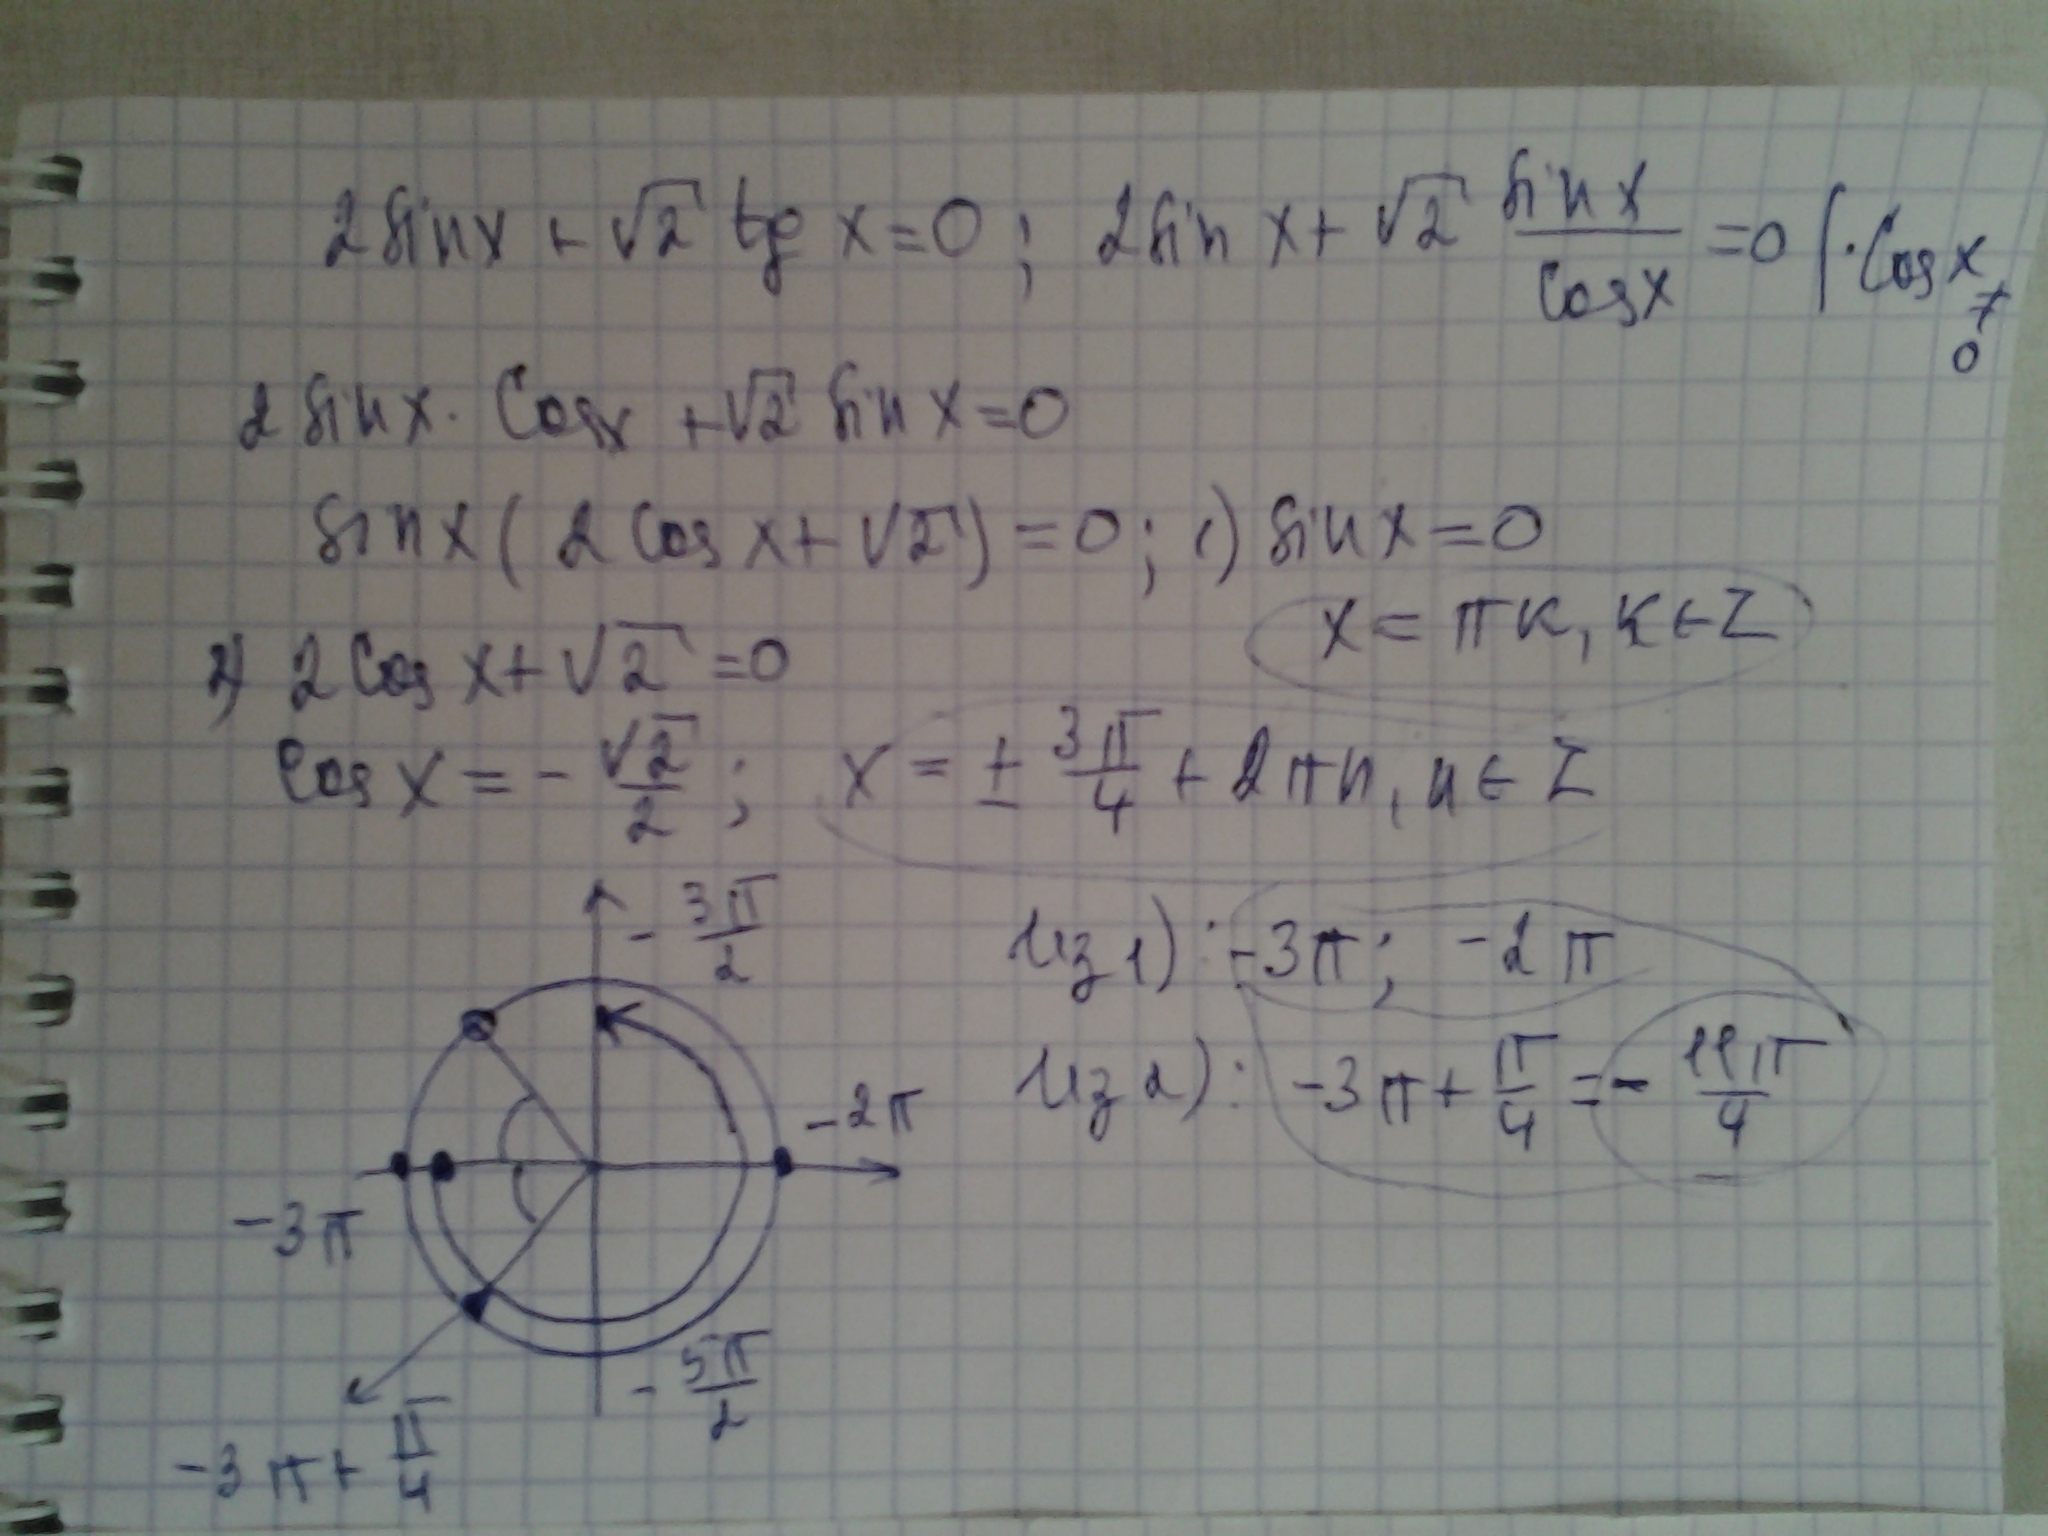 2 sin x + √2 tg x = 0 ; 2 sin x + √2 sin x / cos x = 0 | · cos x ≠ 0
2 sin x · cos x + √2 sin x = 0
sin x ( 2 cos x + √2 ) = 0 ; 1) sin x = 0
x = πk, k ∈ Z
2) 2 cos x + √2 = 0
cos x = - √2/2 ; x = ± 3π/4 + 2πn, n ∈ Z
- 3π/2
Из 1) : -3π ; -2π
Из 2) : -3π + π/4 = - 11π/4
-2π
-3π
- 5π/2
-3π + π/4